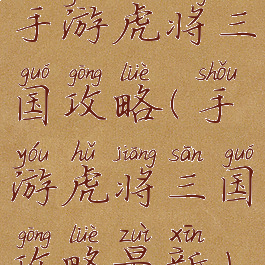 手游虎将三
guó gōng lüè shǒu
国攻略(手
yóu hǔ jiàng sān guó
游虎将三国
gōng lüè zuì xīn
攻略最新)